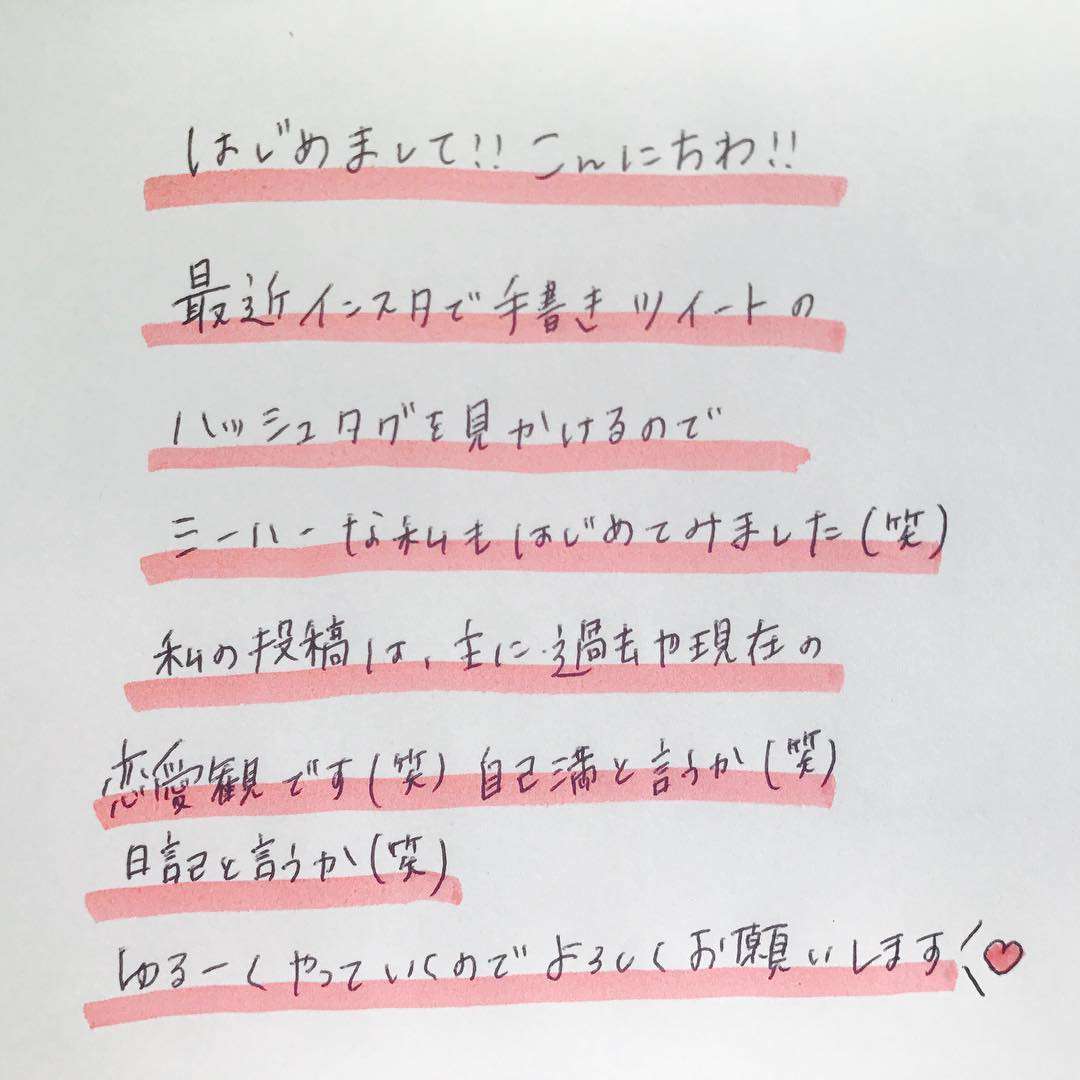 はじめまして!! こんにちわ!!
最近インスタで手書きツイートの
ハッシュタグを見かけるので
ミーハーな私もはじめてみました(笑)
私の投稿は、主に過去や現在の
恋愛観です(笑) 自己満と言うか(笑)
日記と言うか(笑)
ゆるーくやっていくのでよろしくお願いします